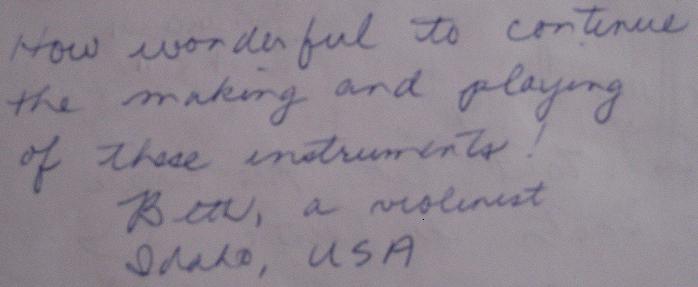 How wonderful to continue
the making and playing
of these instruments!
Beth, a violinist
Idaho, USA